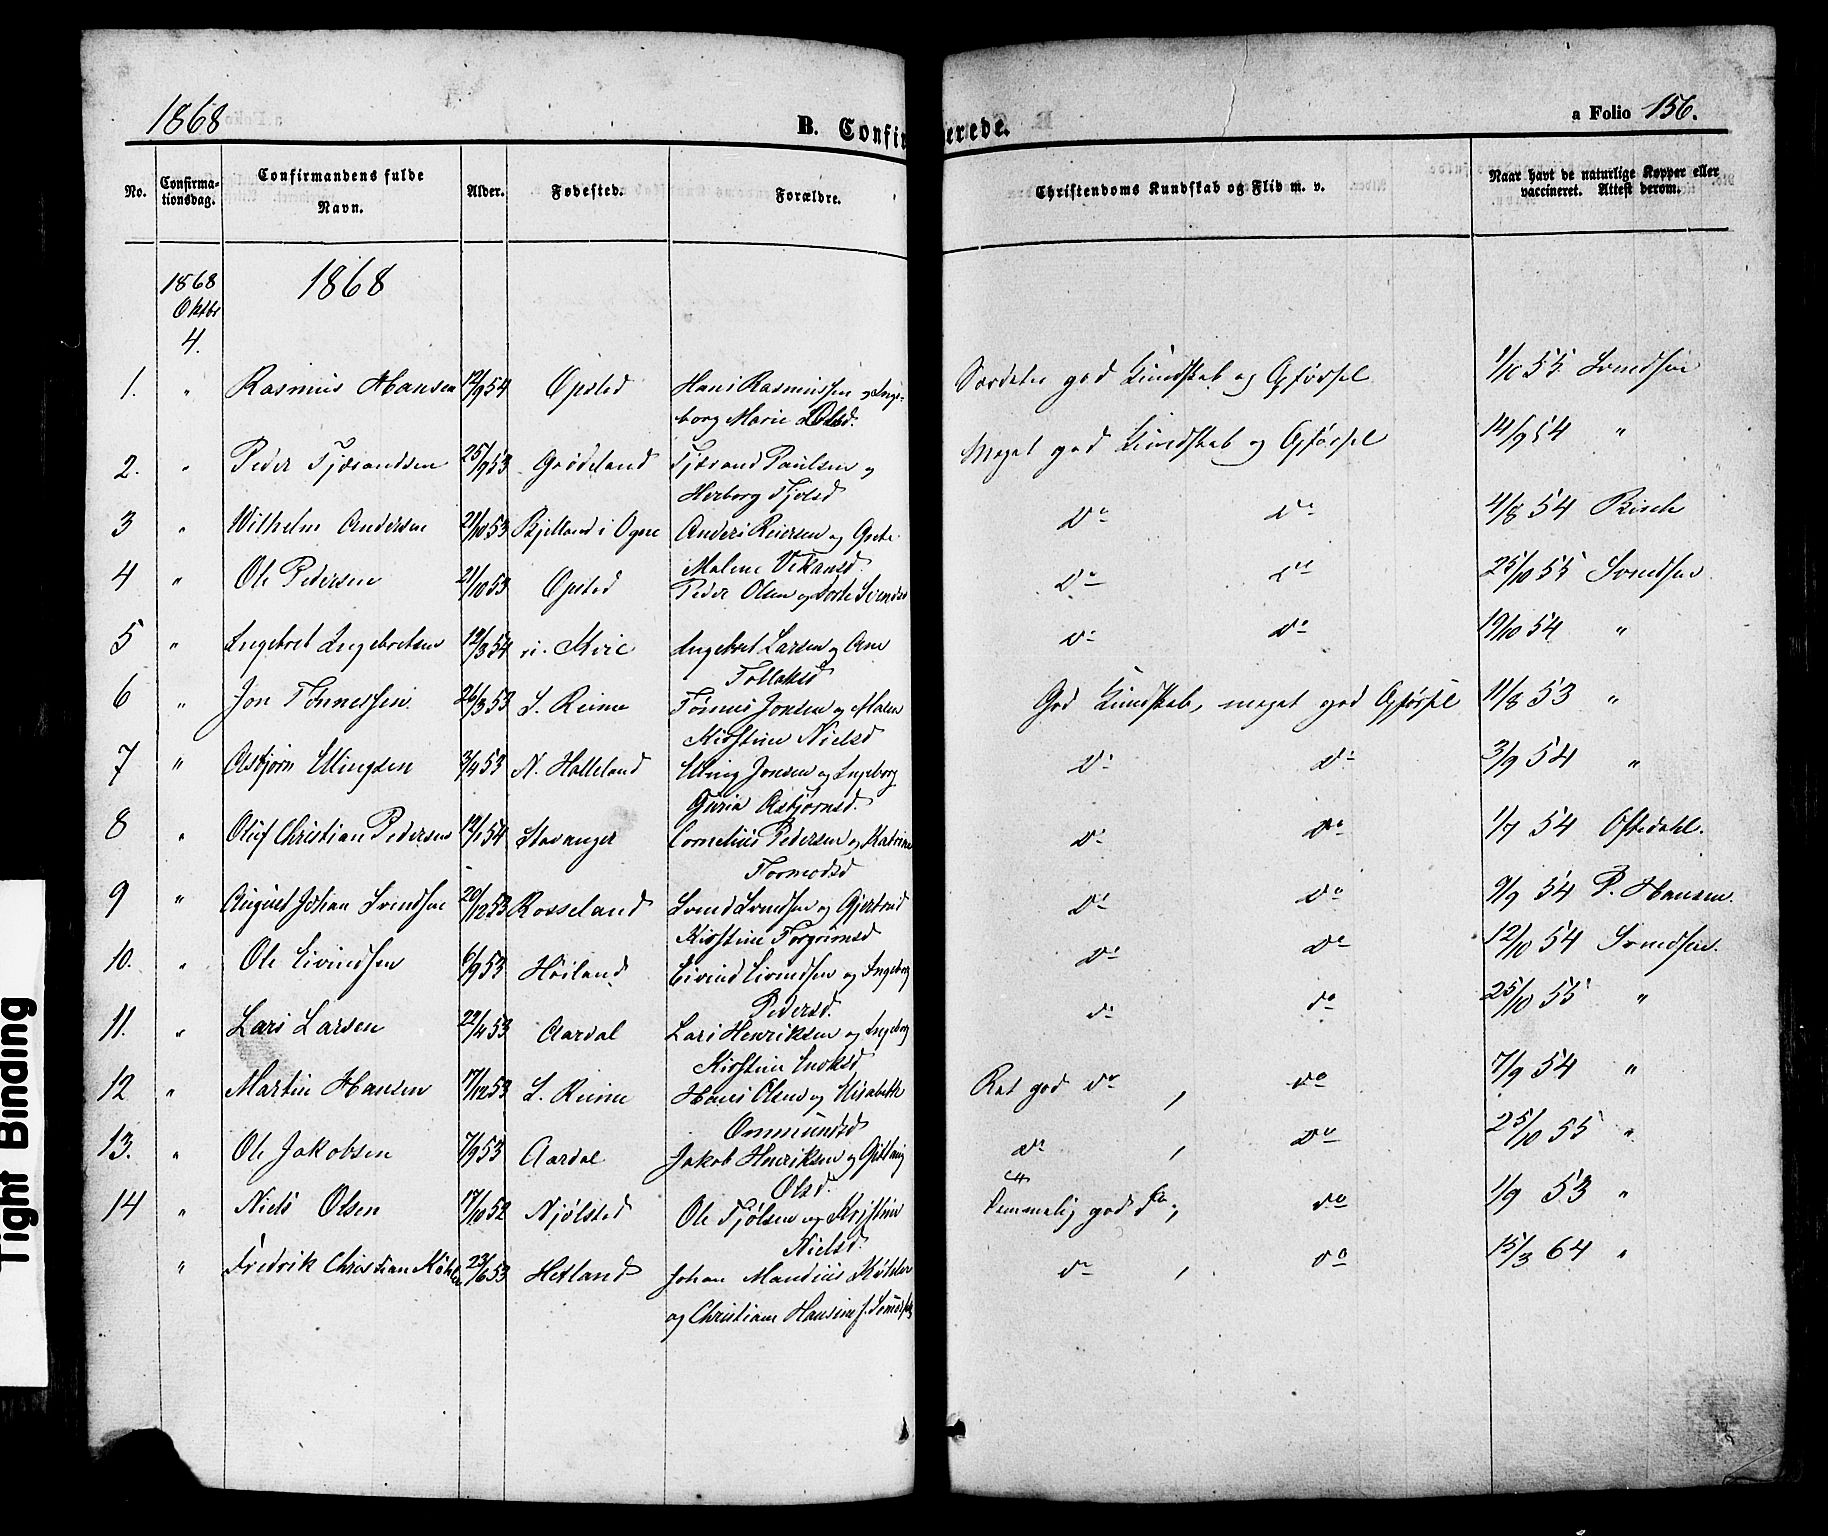 1868 B. Confirmerede. a Folio 156.
No. Confirmationsdag. Confirmandens fulde Navn. Alder. Fødested. Forældre. Christendoms Kundskab og Flid m. v. Naar havt de naturlige Kopper eller vaccineret. Attest derom.
1868 Oktbr 4. 1868
1. " Rasmus Hansen 12/9 54 Opsted Hans Rasmussen og Inge- Særdeles god Kundskab og Opførsel 1/10 55 Svendsen
borg Marie Olsd.
2. " Peder Tjærandsen 25/9 53 Grødeland Tjærand Paulsen og Meget god Kundskab og Opførsel 14/9 54 "
Herborg Tjølsd
3 " Wilhelm Andersen 21/10 53 Bjelland i Ogne Anders Reiersen og Grete do do 4/8 54 Risch
Malene
4 " Ole Pedersen 21/10 53 Opsted Peder Olsen og Dorte Svendsd do do 25/10 55 Svendsen
5 " Ingebret Ingebretsen 12/3 54 n. Mirie Ingebret Larsen og Ane do do 19/10 54 "
Tollaksd
6 " Jon Tønnessen 26/3 53 S. Reime Tønnes Jonsen og Malen God Kundskab, meget god Opførsel 11/8 53 "
Kirstine Nielsd
7 " Asbjørn Ellingsen 3/4 53 N. Halleland Elling Jonsen og Ingeborg do do 3/9 54 "
Guria Asbjørnsd.
8 " Oluf Christian Pedersen 12/1 54 Stavanger Cornelius Pedersen og Katrine do do 1/7 54 Oftedahl.
Tormodsd
9 " August Johan Svendsen 20/12 53 Rosseland Svend Svendsen og Gjertrud do do 9/9 54 P. Hansen.
Kirstine Torgrimsd
10. " Ole Eivindsen 6/9 53 Høiland Eivind Eivindsen og Ingeborg do do 12/10 54 Svendsen.
Pedersd.
11. " Lars Larsen 22/4 53 Aardal Lars Henriksen og Ingeborg do do 25/10 55 "
Kirstine Enoksd
12 " Martin Hansen 17/12 53 S. Reime Hans Olsen og Elisabeth Ret god do , do 7/9 54 "
Ommundsd
13. " Ole Jakobsen 7/9 53 Aardal Jakob Henriksen og do , do 25/10 55 "
Olsd.
14 " Niels Olsen 17/10 52 Njølsted Ole Tjølsen og Kristine Temmelig god do , do 1/9 53 "
Nielsd.
" Fredrik Christian Köhler 23/6 53 Hetland Johan Mandius Köhler do , do 15/3 64 "
og Christiane Hansine f.
Tight Binding